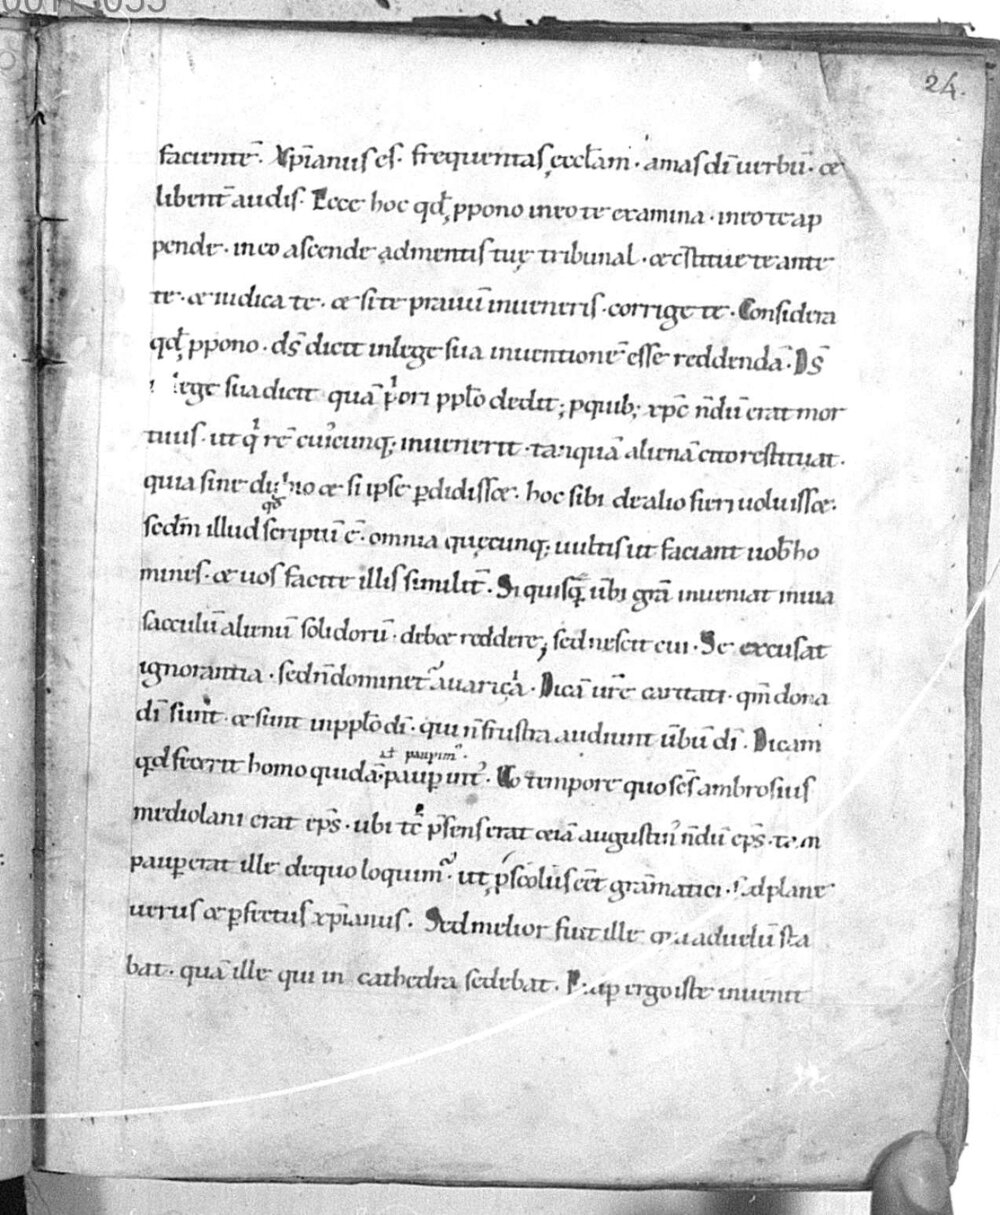 24.
faciente᷃. Xp̄ianus es. frequentas ęccl̄am. amas dī uerbū. &
libent̄ audis. Ecce hoc qđ ꝓpono in eo te examina. in eo te ap
pende. in eo ascende ad mentis tuę tribunal. & c̄stitue te ante
te. & iudica te. & si te prauū inueneris. corrige te. Considera
qđ ꝓpono. ds̄ dicit in lege sua inuentionē esse reddendā. Ds̄
lege sua dicit quā pͥori pplo̅ dedit; ꝓ quib; xp̄c n̄dū erat mor
tuus. ut qͥ rē cuiꝰcunq; inuenerit. tanquā alienā cito restituat.
quia sine & si ipse ꝑdidiss&. hoc sibi de alio fieri uoluiss&.
sedm̄ illud qđ scriptū ē. omnia quęcunq; uultis ut faciant uob̄ ho
mines. & uos facite illis similit̄. Si quisq̄ ūbi grā inueniat in uia
sacculū alienū solidorū. deb& reddere; sed nescit cui. Se excusat
ignorantia. sed n̄ dominet᷑ auariçͥa. Dicā ur̄e caritati. qm̄ dona
dī sunt. & sunt in pplo̅ dī. qui n̄ frustra audiunt ūbū dī. Dicam
ut pauꝑrimꝰ.
qđ fecerit homo quidā. pauꝑ īntꝰ. Eo tempore quo scs̄ ambrosius
mediolani erat ep̄s. ubi tē p̄sens erat &iā augustinꝰ n̄dū ep̄s.
pauꝑ erat ille de quo loquim᷑. ut p̄scolus ēet grāmatici. Sed plane
uerus & ꝑfectus xp̄ianus. Sed melior fuit ille ad uelū sta
bat. quā ille qui in cathedra sedebat. ergo iste inuenit